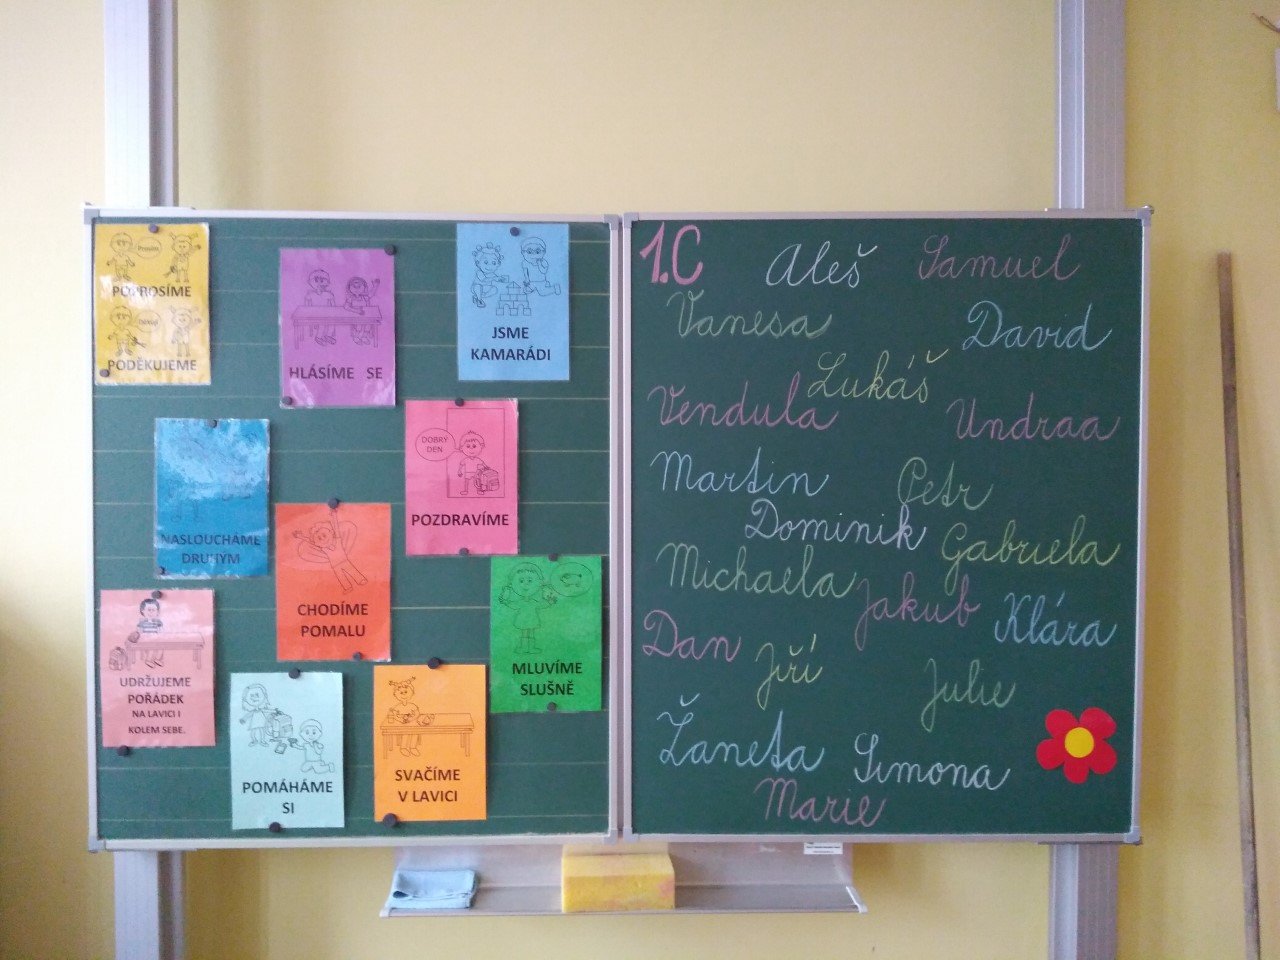 Prosím
POPROSÍME
Děkuji
PODĚKUJEME
HLÁSÍME SE
JSME
KAMARÁDI
NASLOUCHÁME
DRUHÝM
DOBRÝ
DEN
POZDRAVÍME
CHODÍME
POMALU
MLUVÍME
SLUŠNĚ
UDRŽUJEME
POŘÁDEK
NA LAVICI I
KOLEM SEBE.
POMÁHÁME
SI
SVAČÍME
V LAVICI
1.C
Aleš
Samuel
Vanesa
David
Lukáš
Vendula
Undraa
Martin
Petr
Dominik
Gabriela
Michaela
Jakub
Klára
Dan
Jiří
Julie
Žaneta
Simona
Marie